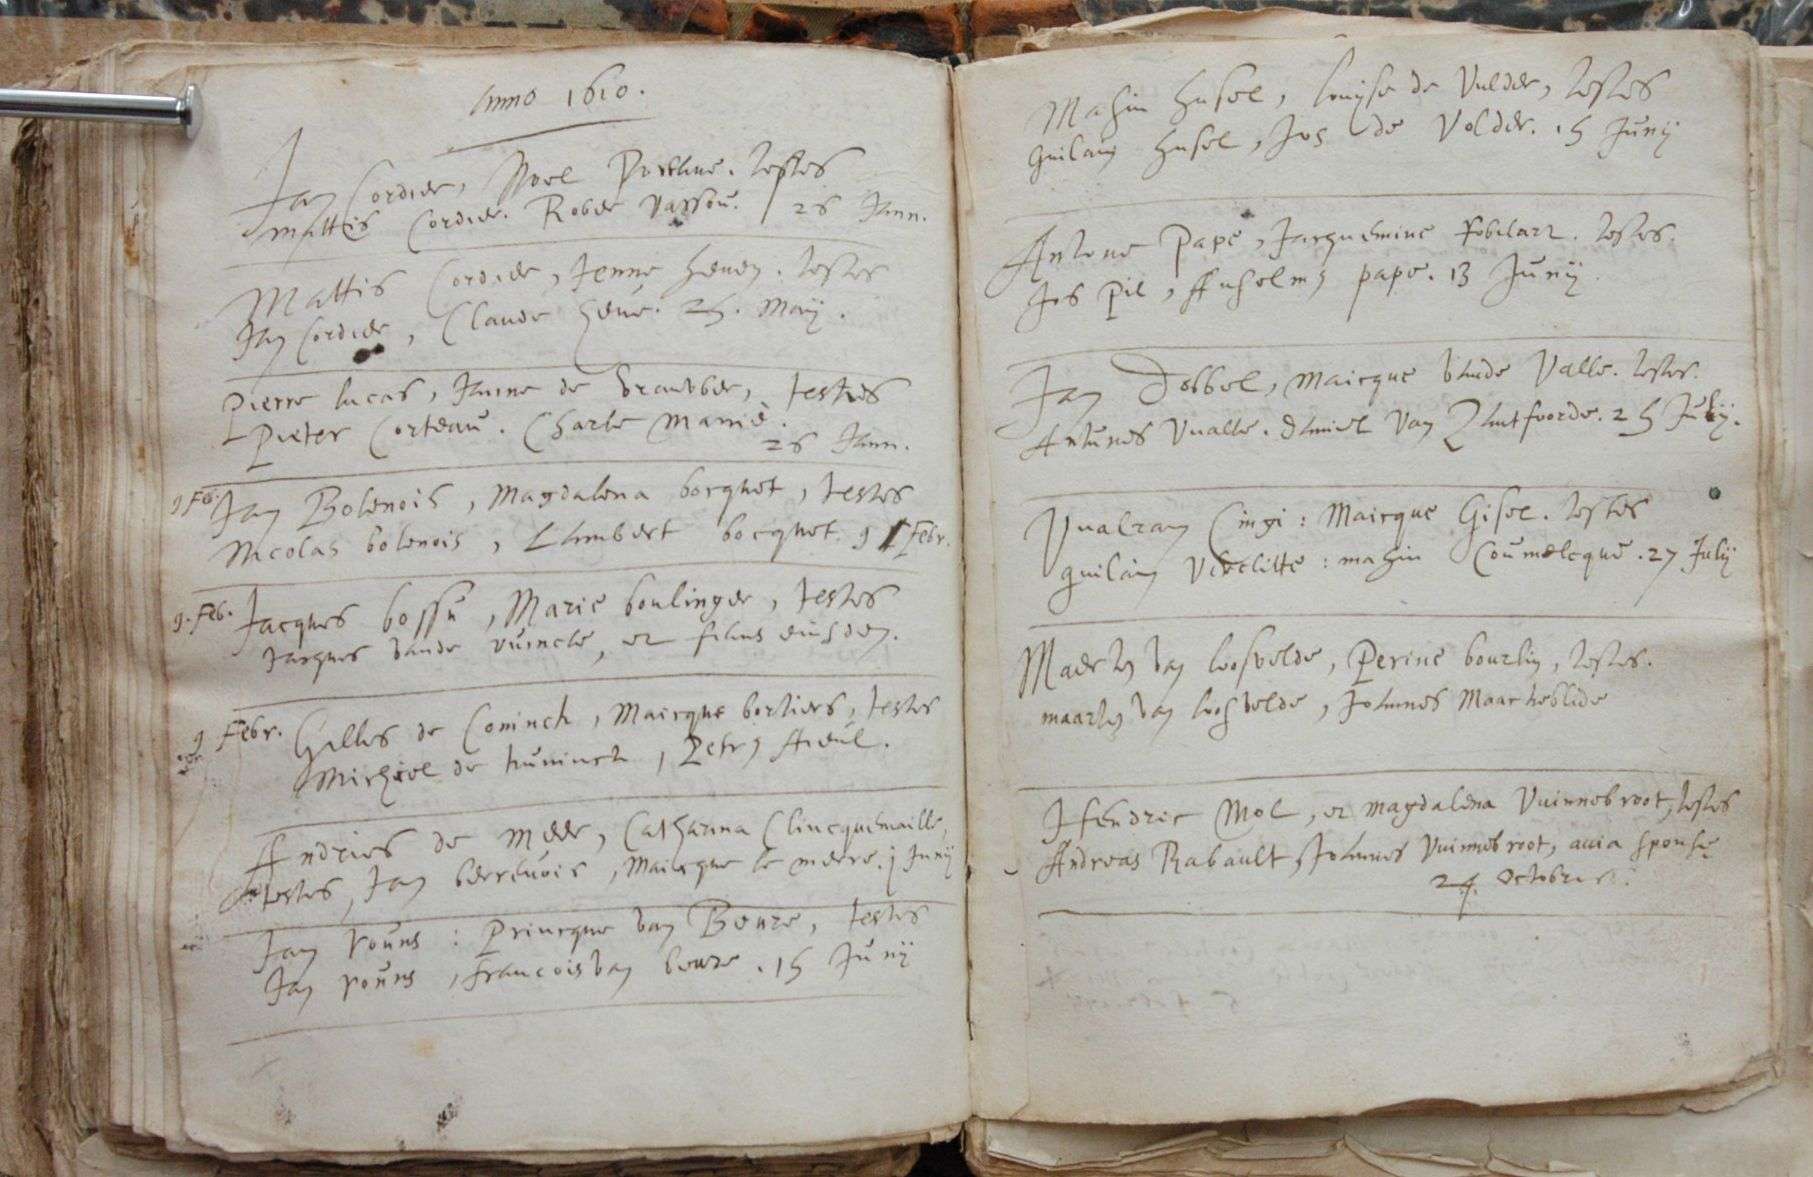 Anno 1610.
Jan Cordier, Noel testes
Mattis Cordier. Rober Vassou. 26 Jann.
Mattis Cordier, Jenne heven. testes
Jan Cordier, Claude heve. 25. Maij.
Pierre Lucas, Janne de testes
Pieter Corteau. Charle Marrie.
26 Jann.
9 Feb. Jan Bolenois, Magdalena bocquet, testes
Nicolas bolenois, Lambert bocquet. 9 Febr.
9. Feb. Jacques bossu, Marie boulinger, testes
Jacques vande vuincle, et filius eiusdem.
9 Febr. Gilles de Coninck, Maicque bortiers, testes
Michiel de huninck, Petrus
Andries de Meer, Catharina Clincquemaille,
testes, Jan berrevois, Maicque le meere. j Junij
Jan rouns : Princque van Beure, testes
Jan rouns, francois van beure. 15 Junij
Mahiu husel, louyse de Vulder, testes
Guilain husel, Jos de Volder. 15 Junij
Antone Pape, Jacquemine testes.
Jos Pil, Anselmus pape. 13 Junij
Jan Dobbel, Maicque vande Valle. testes.
Antunes Vualle. daniel van Zantfoorde. 25 Julij.
Vualran Cingi : Maicque Gisel. testes
guilain Verclitte : mahiu Coumelcque. 27 Julij
Maerten van loosvelde, Perine bourlin, testes.
maarten van loosvelde, Johannes
Hendric Mol, et magdalena Vuinnebroot, testes
Andreas Rabault, Johannes Vuinnebroot, avia sponsae
24. Octobris.